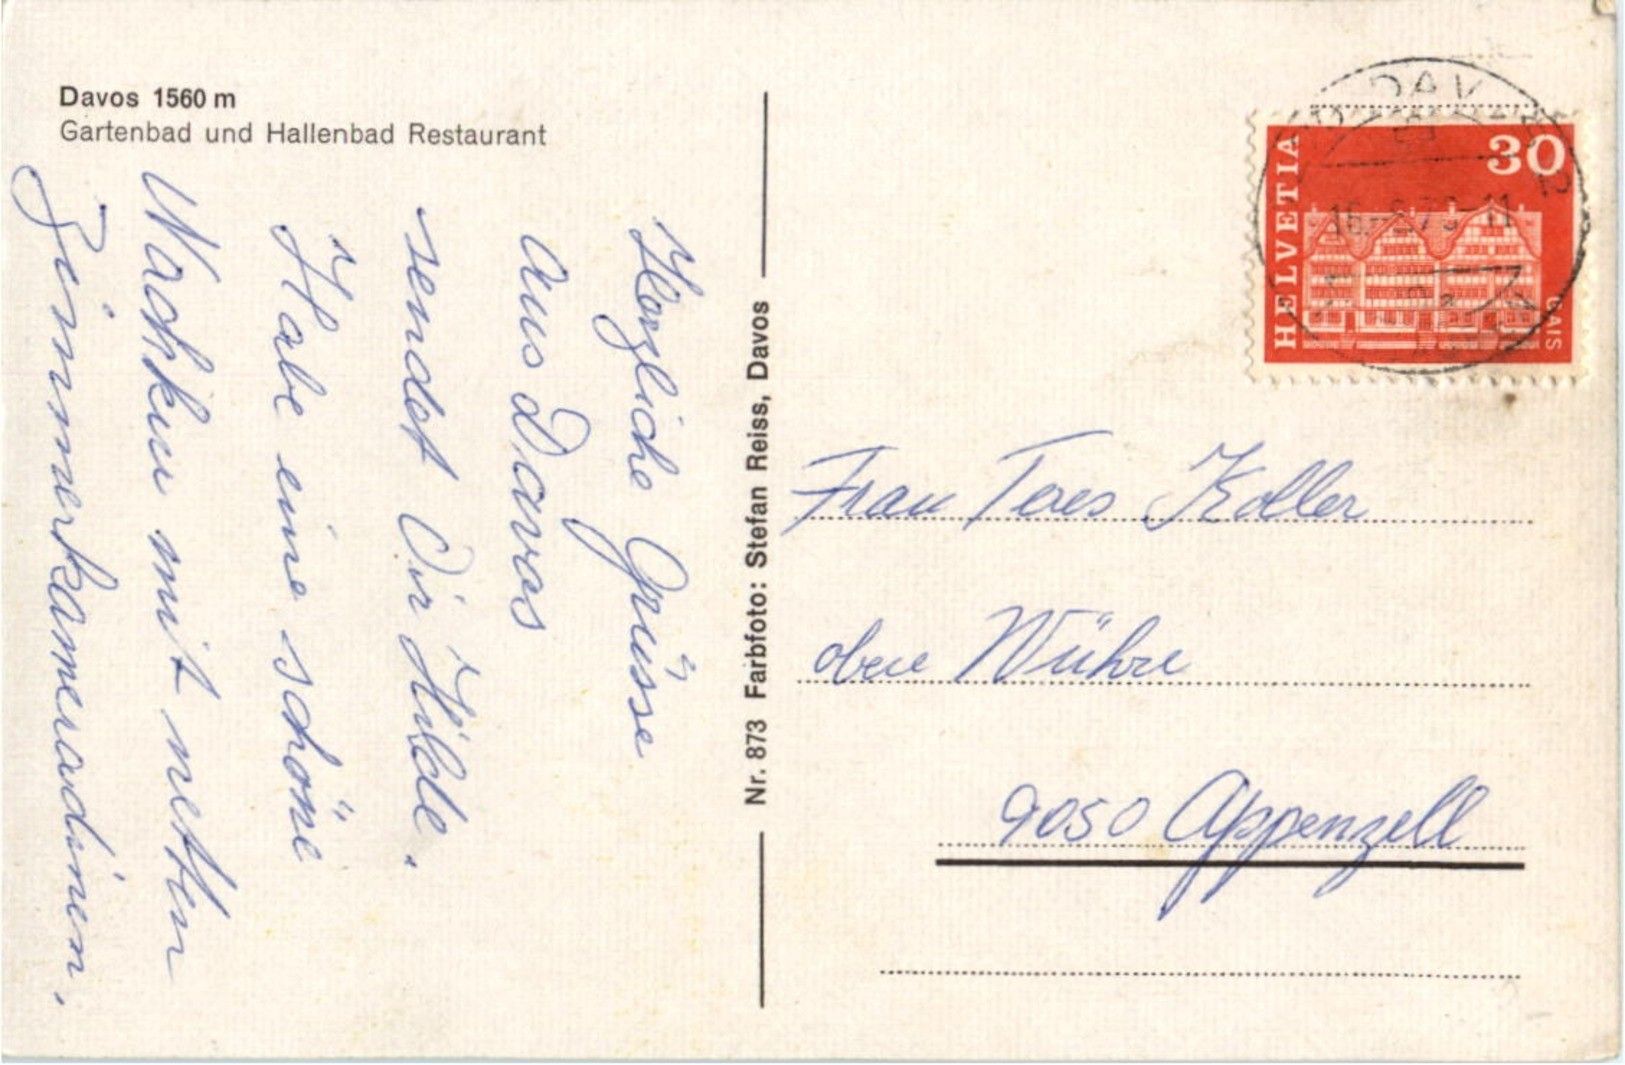 Davos 1560 m
Gartenbad und Hallenbad Restaurant
Herzliche Grüsse
aus Davos
sendet Dir Hilde.
Habe eine schöne
Woche mit netten
Zimmerkameradinnen.
Nr. 873 Farbfoto: Stefan Reiss, Davos
HELVETIA
30
GAIS
Frau Teres Koller
obere Wühre
9050 Appenzell